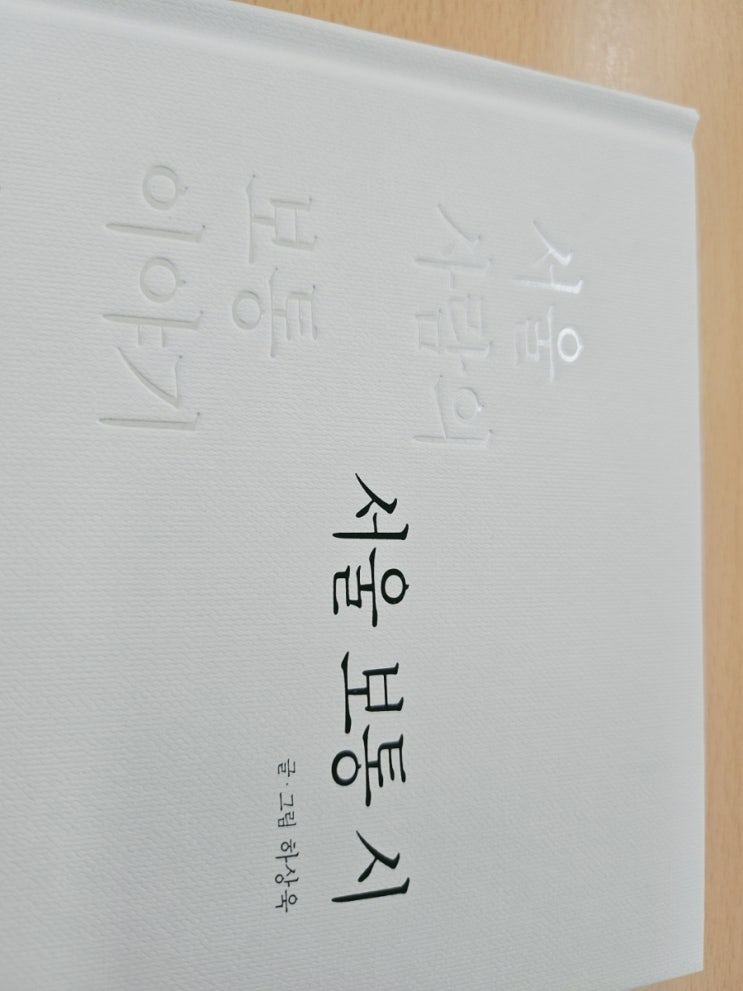 서울
사람의
보통
이야기
서울 보통 시
글·그림 하상욱